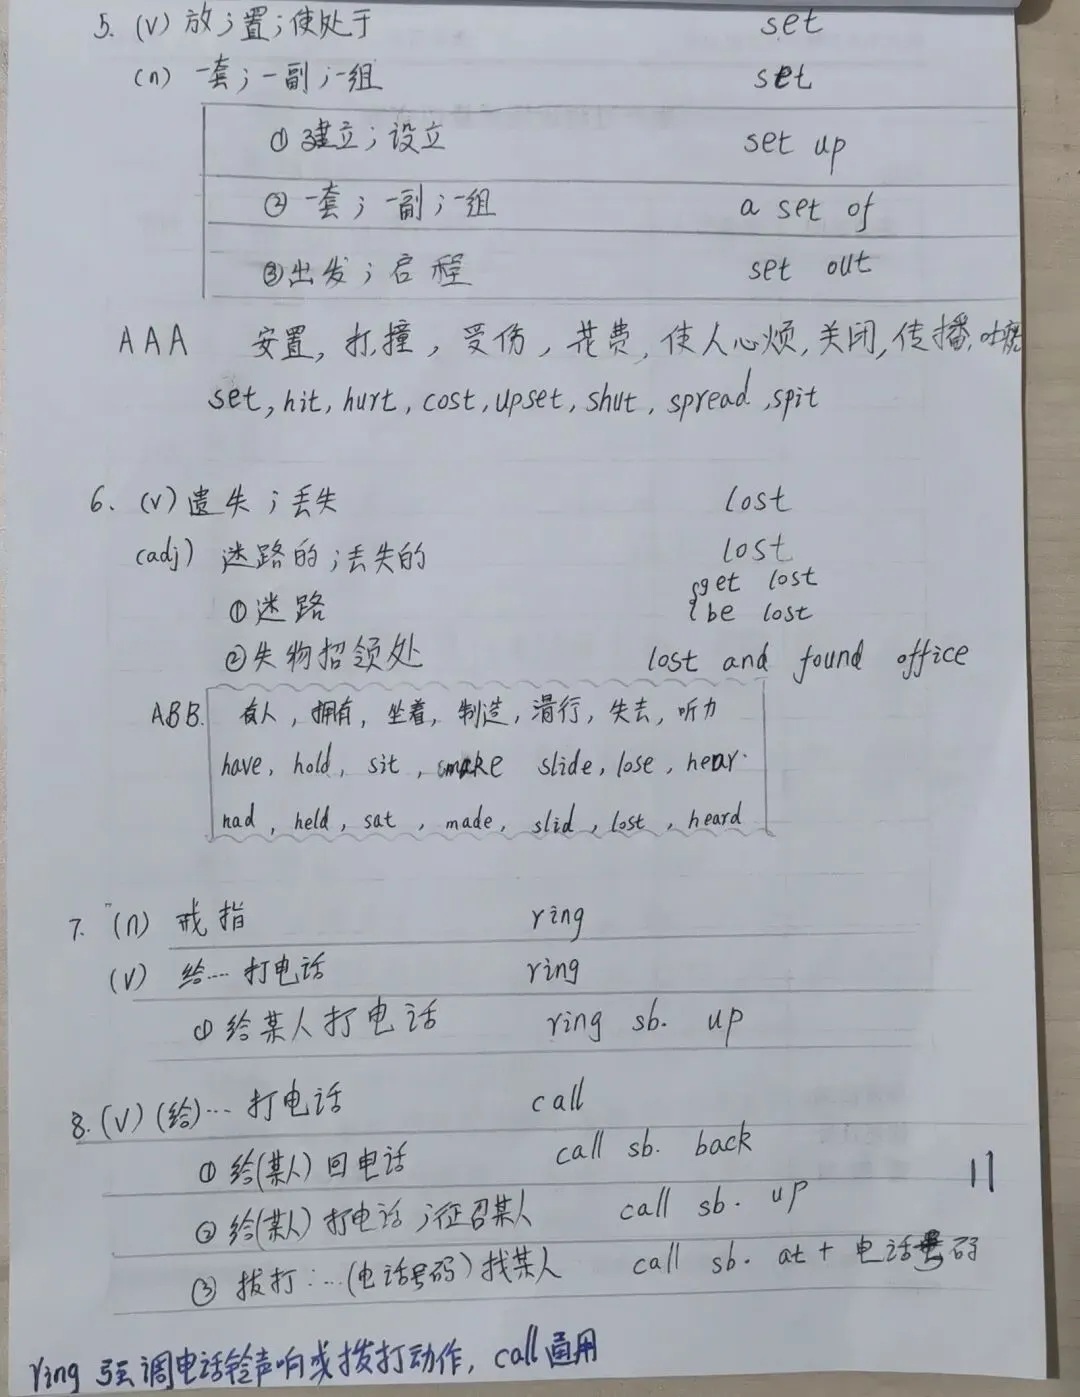 5. (v) 放；置；使处于 set
(n) 一套；一副；一组 set
① 建立；设立 set up
② 一套；一副；一组 a set of
③ 出发；启程 set out
AAA 安置, 打,撞, 受伤, 花费, 使人心烦, 关闭, 传播, 吐
set, hit, hurt, cost, upset, shut, spread, spit
6. (v) 遗失；丢失 lost
(adj) 迷路的；丢失的 lost
① 迷路 { get lost
be lost
② 失物招领处 lost and found office
ABB. 有, 拥有, 坐着, 制造, 滑行, 失去, 听力
have, hold, sit, make slide, lose, hear.
had, held, sat, made, slid, lost, heard
7. (n) 戒指 ring
(v) 给…打电话 ring
① 给某人打电话 ring sb. up
8. (v) (给)…打电话 call
① 给(某人) 回电话 call sb. back
② 给(某人) 打电话；征召某人 call sb. up
11
③ 拔打：…(电话号码) 找某人 call sb. at + 电话号码
ring 强调电话铃声响或拨打动作, call 通用